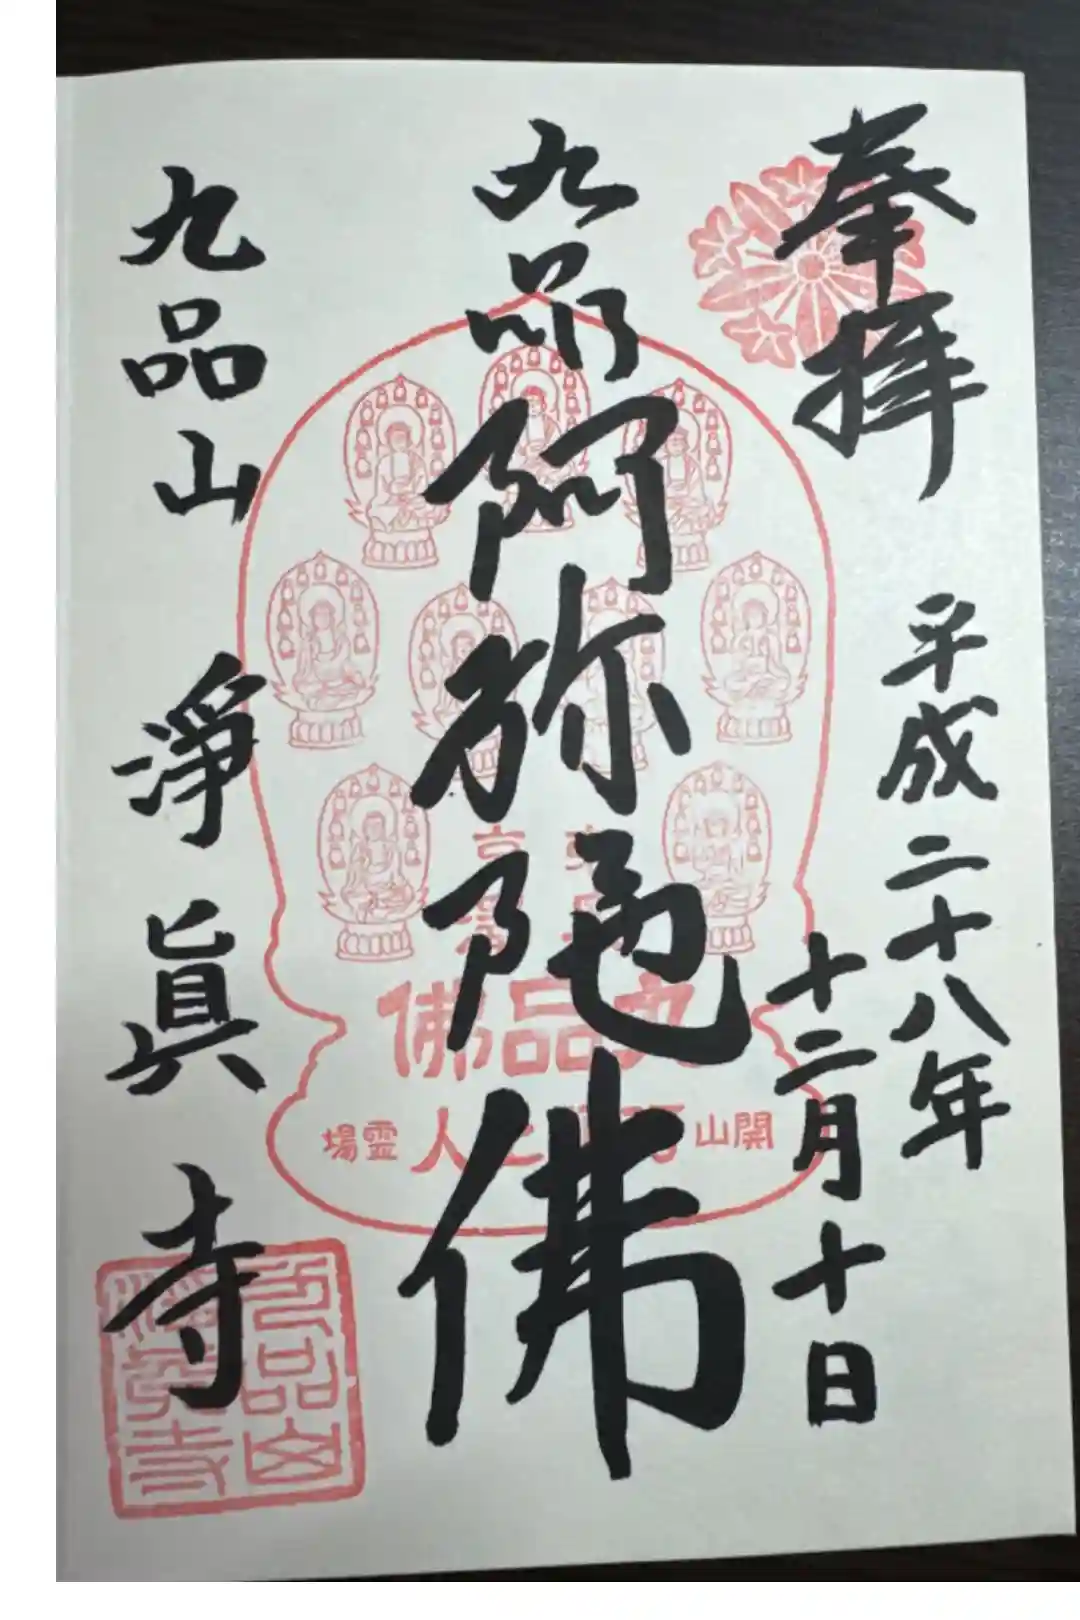 奉拝
平成二十八年
十二月十日
九品阿弥陀佛
九品山 淨眞寺
九品佛
開山
人
霊場
九品山
淨眞寺